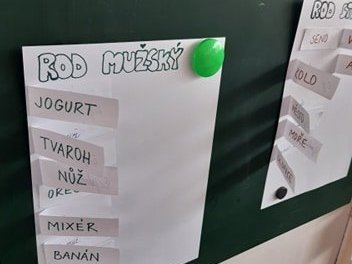 ROD MUŽSKÝ
JOGURT
TVAROH
NŮŽ
MIXÉR
BANÁN
ROD
SENO
KOLO
MOŘE